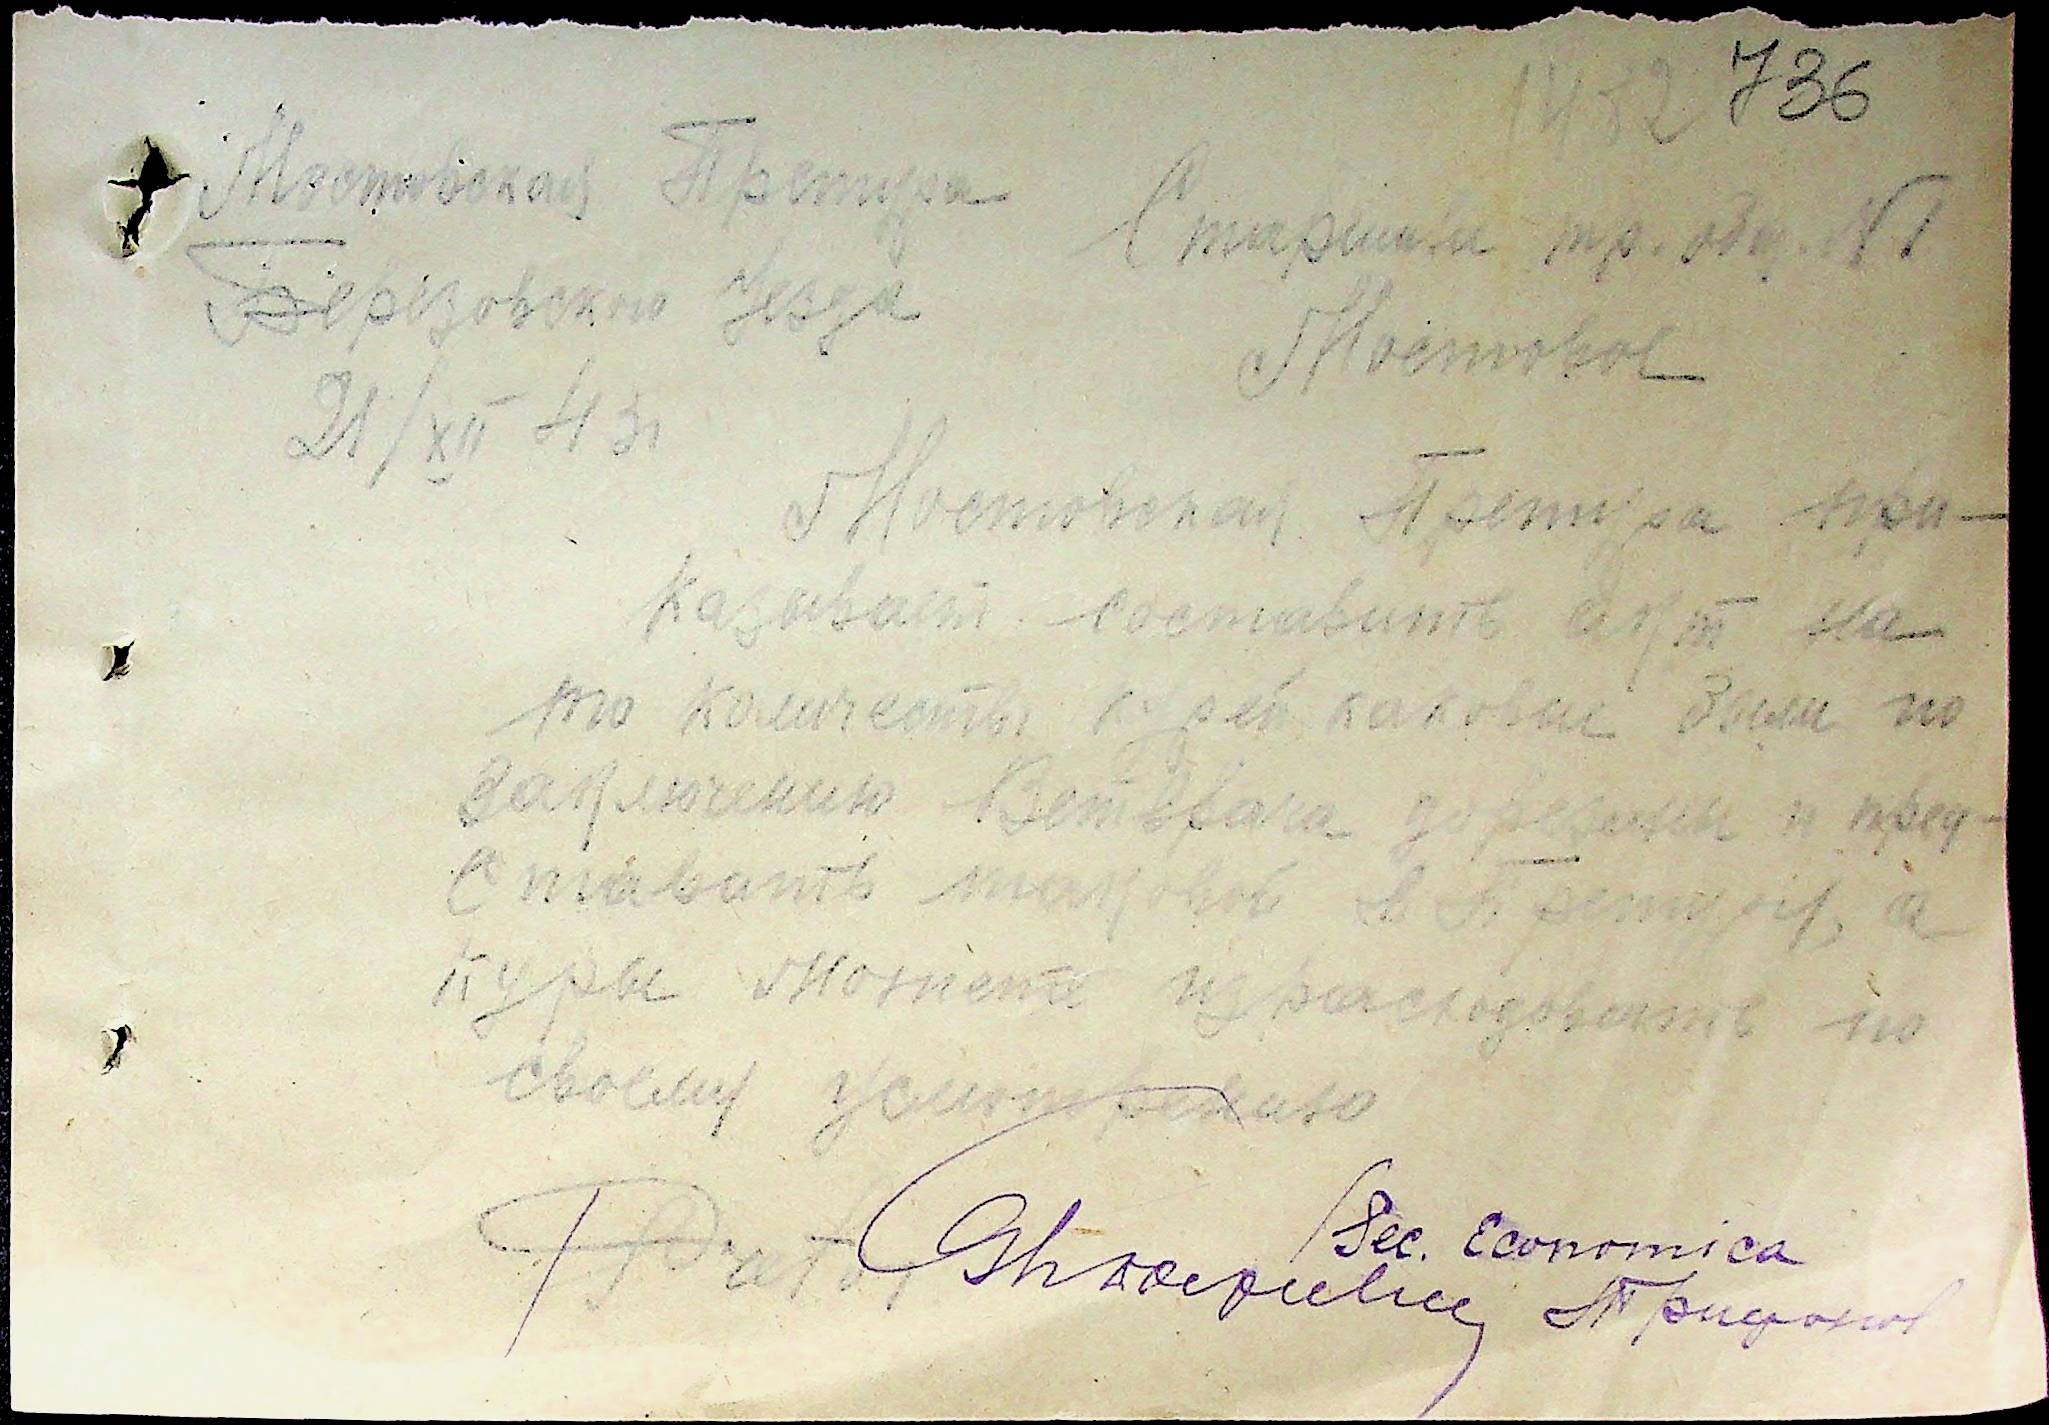 1482 736
Мостовская Претура
Березовского Уезда
21/XII 43г
Старшина тр. общ. №1
Мостовое
Мостовская Претура при-
казывает составить акт на
то количество курей каковые были по
заключению Ветврача дорезаны и пред-
ставить таковой в Претуру, а
куры можете израсходовать по
своему усмотрению
Sec. Economica
Трифонов